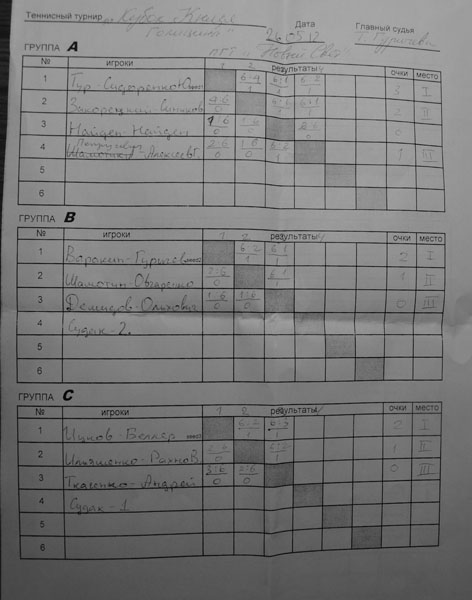 Теннисный турнир „Кубок Князя Дата Главный судья
Голицына" 26.05.12 Т. Гуричева
ПГТ „Новый Свет"
ГРУППА A
№ игроки 1 2 результаты очки место
1 Тур-Сидоренко 6:4 6:1 6:2 3 I
1 1 1
2 Закорецкий- 4:6 6:1 2 II
0 1
3 Найден-Найден 1:6 1:6 2:6 0
0 0 0
4 -Алексеев 2:6 1:6 6:2 1 III
0 0 1
5
6
ГРУППА B
№ игроки 1 2 результаты очки место
1 Воронин-Гуричев 6:2 6:1 2 I
1 1
2 Шамотин-Овчаренко 2:6 6:1 1 II
0 1
3 Демидов- 1:6 1:6 0 III
0 0
4 Судак-2.
5
6
ГРУППА C
№ игроки 1 2 результаты очки место
1 -Беллер 6:2 6:3 2 I
1 1
2 Ильяшенко-Рахнов 2:6 6:2 1 II
0 1
3 Ткаченко-Андрей 3:6 2:6 0 III
0 0
4 Судак-1.
5
6